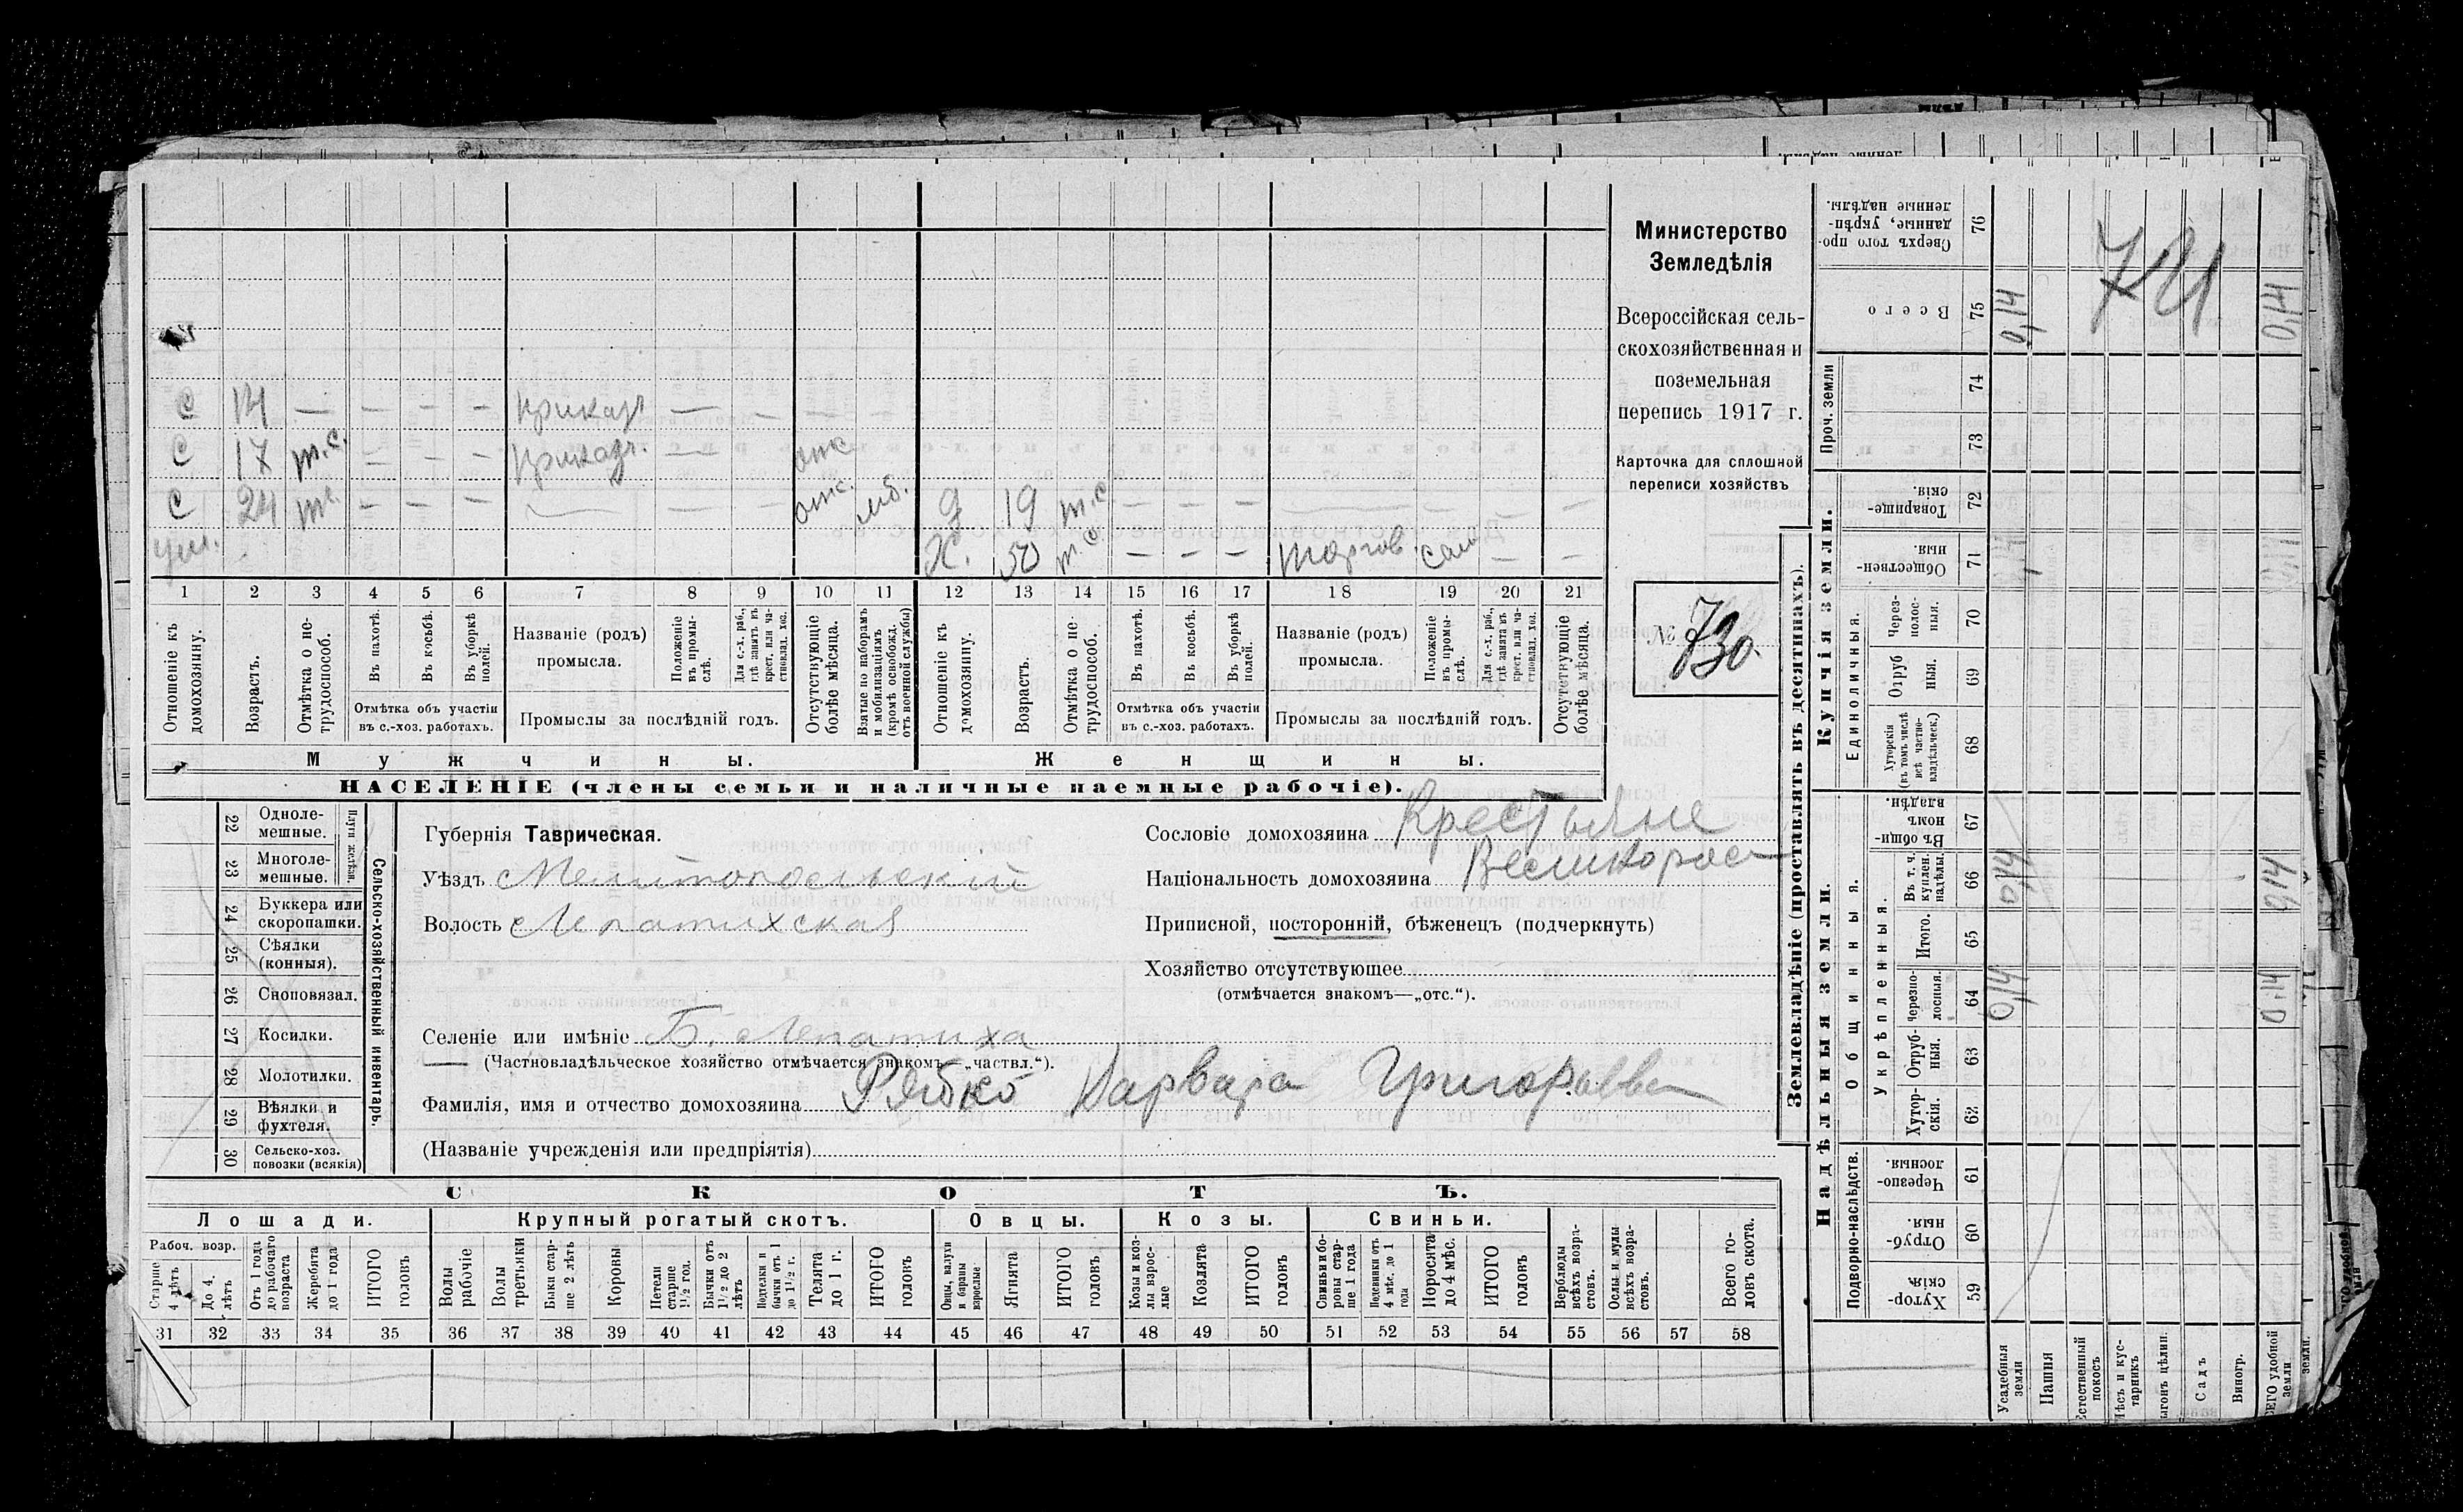 Министерство
Земледѣлія
Всероссійская сель-
скохозяйственная и
поземельная
перепись 1917 г.
Карточка для сплошной
переписи хозяйствъ
№ 730.
721
С 14 — — — — приказч — — — —
С 17 т.с. — — — приказч. — отс
С 24 т.с. — — — — — — отс. мб. д 19 т.с. — — — — — — —
ум. - Х. 50 т.с. — — — торгов. сам — —
1 2 3 4 5 6 7 8 9 10 11 12 13 14 15 16 17 18 19 20 21
Отношеніе къ домохозяину.
Возрастъ.
Отмѣтка о не-трудоспособ.
Въ пахотѣ.
Въ косьбѣ.
Въ уборкѣ полей.
Отмѣтка объ участіи
въ с.-хоз. работахъ.
Названіе (родъ)
промысла.
Положеніе въ промы-слѣ.
Для с.-х. раб., гдѣ занятъ въ крест. или ча-стновлад. хоз.
Промыслы за послѣдній годъ.
Отсутствующіе болѣе мѣсяца.
Взятые по наборамъ и мобилизаціямъ (кромѣ освобожд. отъ военной службы)
Отношеніе къ домохозяину.
Возрастъ.
Отмѣтка о не-трудоспособ.
Въ пахотѣ.
Въ косьбѣ.
Въ уборкѣ полей.
Отмѣтка объ участіи
въ с.-хоз. работахъ.
Названіе (родъ)
промысла.
Положеніе въ промы-слѣ.
Для с.-х. раб., гдѣ занята въ крест. или ча-стновлад. хоз.
Промыслы за послѣдній годъ.
Отсутствующіе болѣе мѣсяца.
Мужчины.
Женщины.
НАСЕЛЕНІЕ (члены семьи и наличные наемные рабочіе).
22 Одноле-мешные.
23 Многоле-мешные.
Плуги желѣзн.
24 Буккера или скоропашки.
25 Сѣялки (конныя).
26 Сноповязал.
27 Косилки.
28 Молотилки.
29 Вѣялки и фухтеля.
30 Сельско-хоз. повозки (всякія)
Сельско-хозяйственный инвентарь.
Губернія Таврическая.
Уѣздъ Мелитопольскій
Волость Лепатихская
Селеніе или имѣніе Б. Лепатиха
— (Частновладѣльческое хозяйство отмѣчается знакомъ—„частвл.“).
Фамилія, имя и отчество домохозяина Рябко Варвара Григорьевна
(Названіе учрежденія или предпріятія)
Сословіе домохозяина Крестьяне
Національность домохозяина Великорос
Приписной, посторонній, бѣженецъ (подчеркнуть)
Хозяйство отсутствующее
(отмѣчается знакомъ—„отс.“).
СКОТЪ.
Лошади. Крупный рогатый скотъ. Овцы. Козы. Свиньи.
Рабоч. возр.
Старше 4 лѣтъ
До 4. лѣтъ
Отъ 1 года до рабочаго возраста
Жеребята до 1 года
ИТОГО головъ
Волы рабочіе
Волы третьяки
Быки стар-ше 2 лѣтъ
Коровы
Нетели старше 1½ год.
Бычки отъ 1½ до 2 лѣтъ
Телята до 1 г.
ИТОГО головъ
Овцы, валухи и бараны взрослые
Ягнята
ИТОГО головъ
Козы и коз-лы взрос-лые
Козлята
ИТОГО головъ
Свиньи и бо-ровы стар-ше 1 года
Подсвинки отъ 4 мѣс. до 1 года
Поросята до 4 мѣс.
ИТОГО головъ
Верблюды всѣхъ возра-стовъ.
Ослы и мулы всѣхъ возра-стовъ.
Всего го-ловъ скота.
31 32 33 34 35 36 37 38 39 40 41 42 43 44 45 46 47 48 49 50 51 52 53 54 55 56 57 58
Землевладѣніе (проставлять въ десятинахъ).
Надѣльныя земли.
Купчія земли.
Проч. земли
Сверхъ того про-данные, укрѣп-ленные надѣлы. 76
Всего 75 0,14 0,14
74
73
Товарище-скія. 72
Обществен-ныя. 71
Единоличныя.
Через-полос-ныя. 70
Отруб ныя. 69
Хуторскія (въ томъ числѣ всѣ частно-владѣльческ.) 68
Общинныя.
Въ общи-номъ владѣн. 67
Укрѣпленныя.
Въ т. ч. куплен. надѣлы. 66 0,14 0,14
Итого. 65
Черезпо-лосныя. 64 0,14 0,14
Отруб-ныя. 63
Хутор-скія. 62
Подворно-наслѣдств.
Черезпо-лосныя. 61
Отруб-ныя. 60
Хутор-скія. 59
Усадебныя земли
Пашня
Естественный покосъ
Лѣсъ и кус-тарникъ
Садъ
Виногр.
удобной земли
земли.